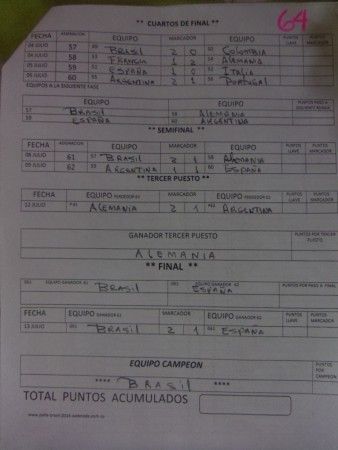 64
** CUARTOS DE FINAL **
FECHA ASIGNACION EQUIPO MARCADOR EQUIPO PUNTOS LLAVE PUNTOS MARCADOR
04 JULIO 57 BRASIL 2 0 COLOMBIA
04 JULIO 58 FRANCIA 1 2 ALEMANIA
05 JULIO 59 ESPAÑA 1 0 ITALIA
05 JULIO 60 ARGENTINA 2 1 PORTUGAL
EQUIPOS A LA SIGUIENTE FASE
EQUIPO EQUIPO
57 BRASIL 58 ALEMANIA
59 ESPAÑA 60 ARGENTINA
** SEMIFINAL **
FECHA ASIGNACION EQUIPO MARCADOR EQUIPO PUNTOS LLAVE PUNTOS MARCADOR
08 JULIO 61 57 BRASIL 2 1 58 ALEMANIA
09 JULIO 62 ARGENTINA 1 1 ESPAÑA
** TERCER PUESTO **
FECHA EQUIPO PERDEDOR 61 MARCADOR EQUIPO PERDEDOR 62 PUNTOS LLAVE PUNTOS MARCADOR
12 JULIO P.61 ALEMANIA 2 1 P.62 ARGENTINA
GANADOR TERCER PUESTO PUNTOS POR TERCER PUESTO
ALEMANIA
** FINAL **
G61 EQUIPO GANADOR 61 BRASIL G62 EQUIPO GANADOR 62 ESPAÑA PUNTOS POR PASO A FINAL
FECHA EQUIPO GANADOR 61 MARCADOR EQUIPO GANADOR 62 PUNTOS LLAVE PUNTOS MARCADOR
13 JULIO G61 BRASIL 2 1 G62 ESPAÑA
EQUIPO CAMPEON PUNTOS POR CAMPEON
**** BRASIL ****
TOTAL PUNTOS ACUMULADOS